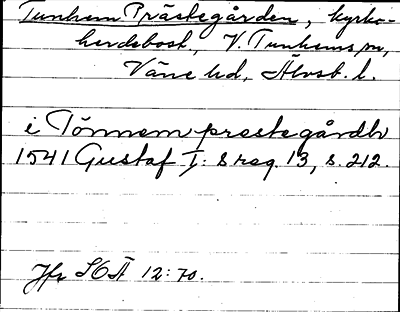 Tunhem Prästegården, kyrko-
herdebost., V. Tunhems sn,
Väne hd, Älvsb. l.
i Tönnem prestegårdh
1541 Gustaf I:s reg. 13, s. 212.
Jfr SOÄ 12:70.